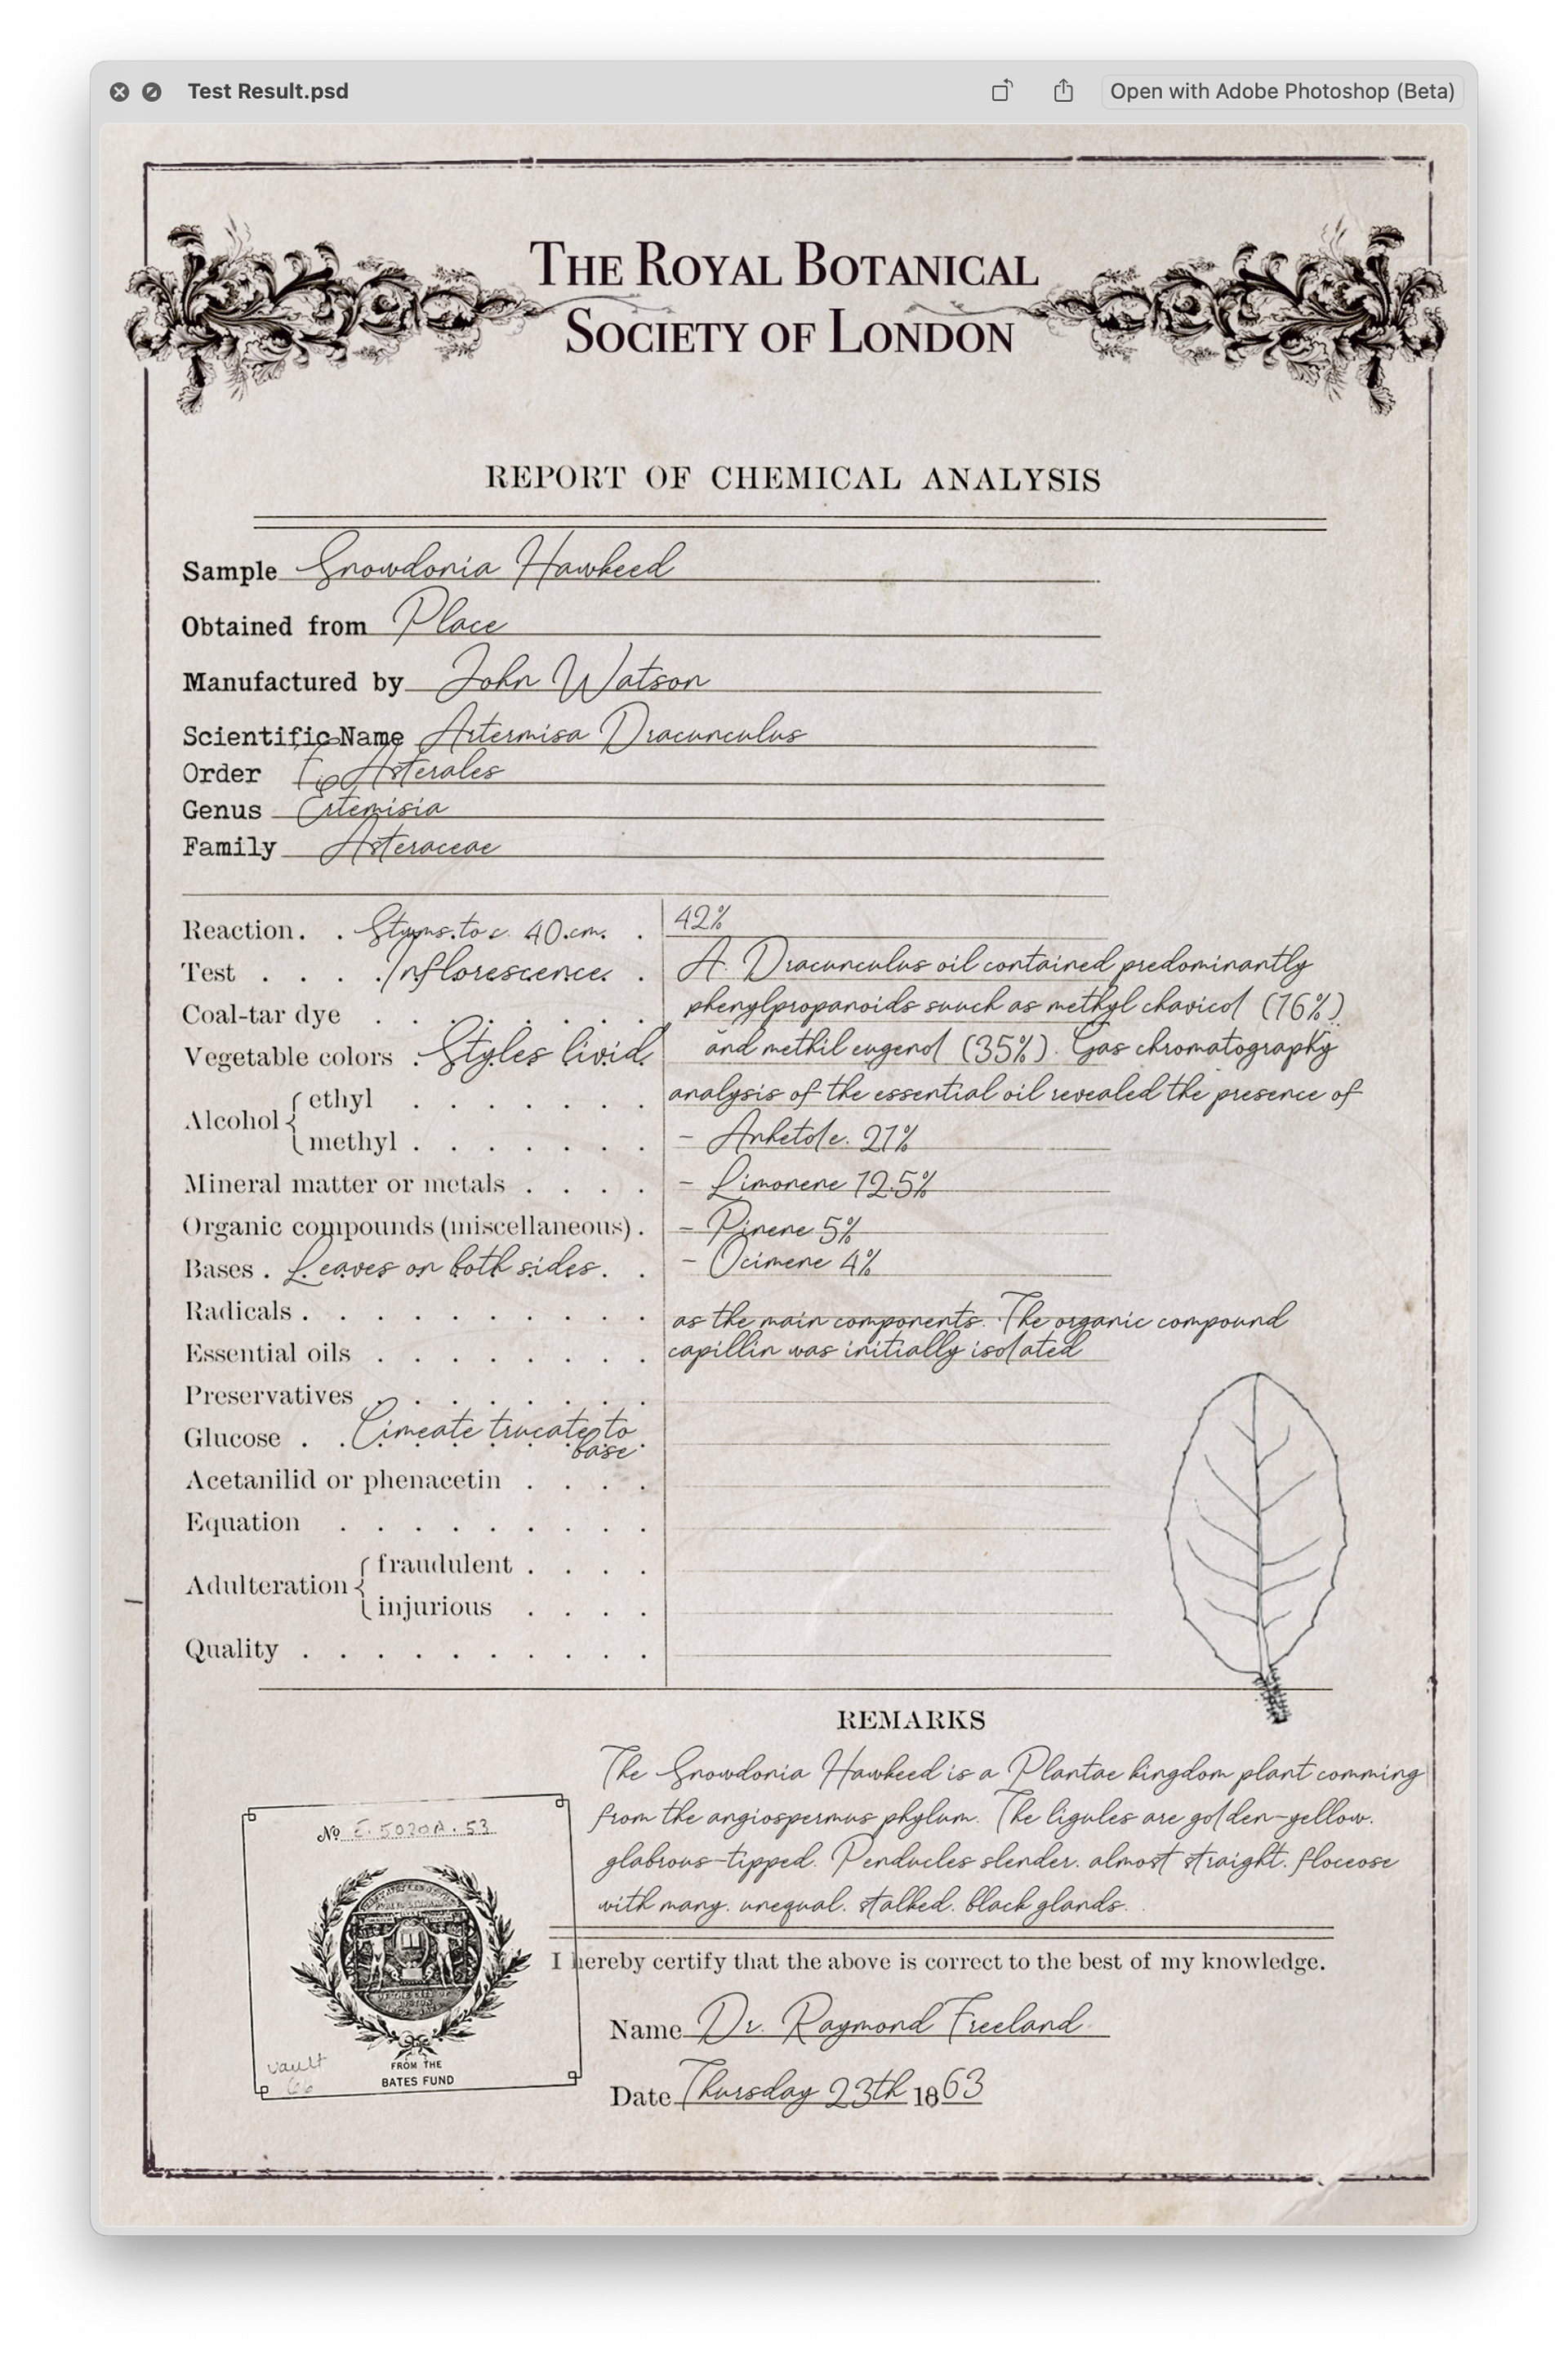 Test Result.psd
Open with Adobe Photoshop (Beta)
THE ROYAL BOTANICAL
SOCIETY OF LONDON
REPORT OF CHEMICAL ANALYSIS
Sample Snowdonia Hawkeed
Obtained from Place
Manufactured by John Watson
Scientific Name Artermisa Dracunculus
Order Asterales
Genus Ertemisia
Family Asteraceae
Reaction. . to c. 40.cm. . 42%
Test . . . . Inflorescence. . A. Dracunculus oil contained predominantly
Coal-tar dye . . . . . . . . phenylpropanoids suuch as methyl chavicol (16%)
Vegetable colors . Styles livid. and methil eugenol (35%). Gas chromatography
analysis of the essential oil revealed the presence of
Alcohol { ethyl . . . . . . .
methyl . . . . . . . - Anhetole. 21%
Mineral matter or metals . . . . - Limonene 12.5%
Organic compounds (miscellaneous) . - Pinene 5%
Bases . Leaves on both sides. . . - Ocimene 4%
Radicals . . . . . . . . . . as the main components. The organic compound
Essential oils . . . . . . . . capillin was initially isolated
Preservatives . . . . . . . .
Glucose . . Cimeate trucate to
base
Acetanilid or phenacetin . . . .
Equation . . . . . . . . .
Adulteration { fraudulent . . . .
injurious . . . .
Quality . . . . . . . . . .
REMARKS
The Snowdonia Hawkeed is a Plantae kingdom plant comming
from the angiospermus phylum. The ligules are golden-yellow.
glabrous-tipped. Penducles slender. almost straight. floceose
with many. unequal. stalked. black glands. .
I hereby certify that the above is correct to the best of my knowledge.
Name Dr. Raymond Freeland
Date Thursday 23th 1863
No E. 5020A. 53
vault
66
FROM THE
BATES FUND